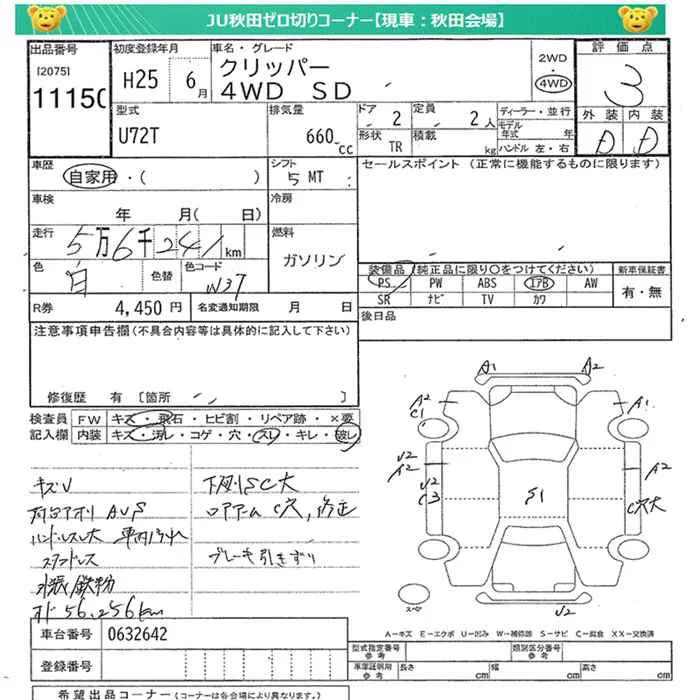 JU秋田ゼロ切りコーナー【現車：秋田会場】
出品番号
[2075]
11150
初度登録年月
H25 6月
車名・グレード
クリッパー
4WD SD
2WD
4WD
評価点
3
外装 内装
D D
型式
U72T
排気量
660 cc
ドア 2
形状 TR
定員 2人
積載 kg
ディーラー・並行
モデル年式 年
ハンドル 左・右
車歴
自家用・( )
シフト
5 MT
セールスポイント (正常に機能するものに限ります)
車検
年 月( 日)
冷房
走行 5万6千241km
燃料
ガソリン
色 白 色替 色コード W37
装備品 (純正品に限り○をつけてください)
新車保証書
PS PW ABS エアB AW
有・無
SR ナビ TV カワ
R券 4,450円
名変通知期限 月 日
後日品
注意事項申告欄(不具合内容等は具体的に記入して下さい)
修復歴 有 [箇所 ]
検査員記入欄
FW キズ・飛石・ヒビ割・リペア跡・×要
内装 キズ・汚れ・コゲ・穴・スレ・キレ・破れ
キズU
下廻りSC大
荷台アオリ AUS
ロアアーム C穴,修正
ハンドルスレ大
スタッドレス
ブレーキ引きずり
水振 鉄粉
56,256km
A1 A2
A2 A1
C1
U2
A2 A2
U2
C3 S1 C穴大
U2
スペア
A－キズ E－エクボ U－凹み W－補修跡 S－サビ C－腐食 XX－交換済
車台番号 0632642
型式指定番号 参考
類別区分番号 参考
登録番号
車庫証明用 参考
長さ cm 幅 cm 高さ cm
希望出品コーナー(コーナーは各会場により異なります。)